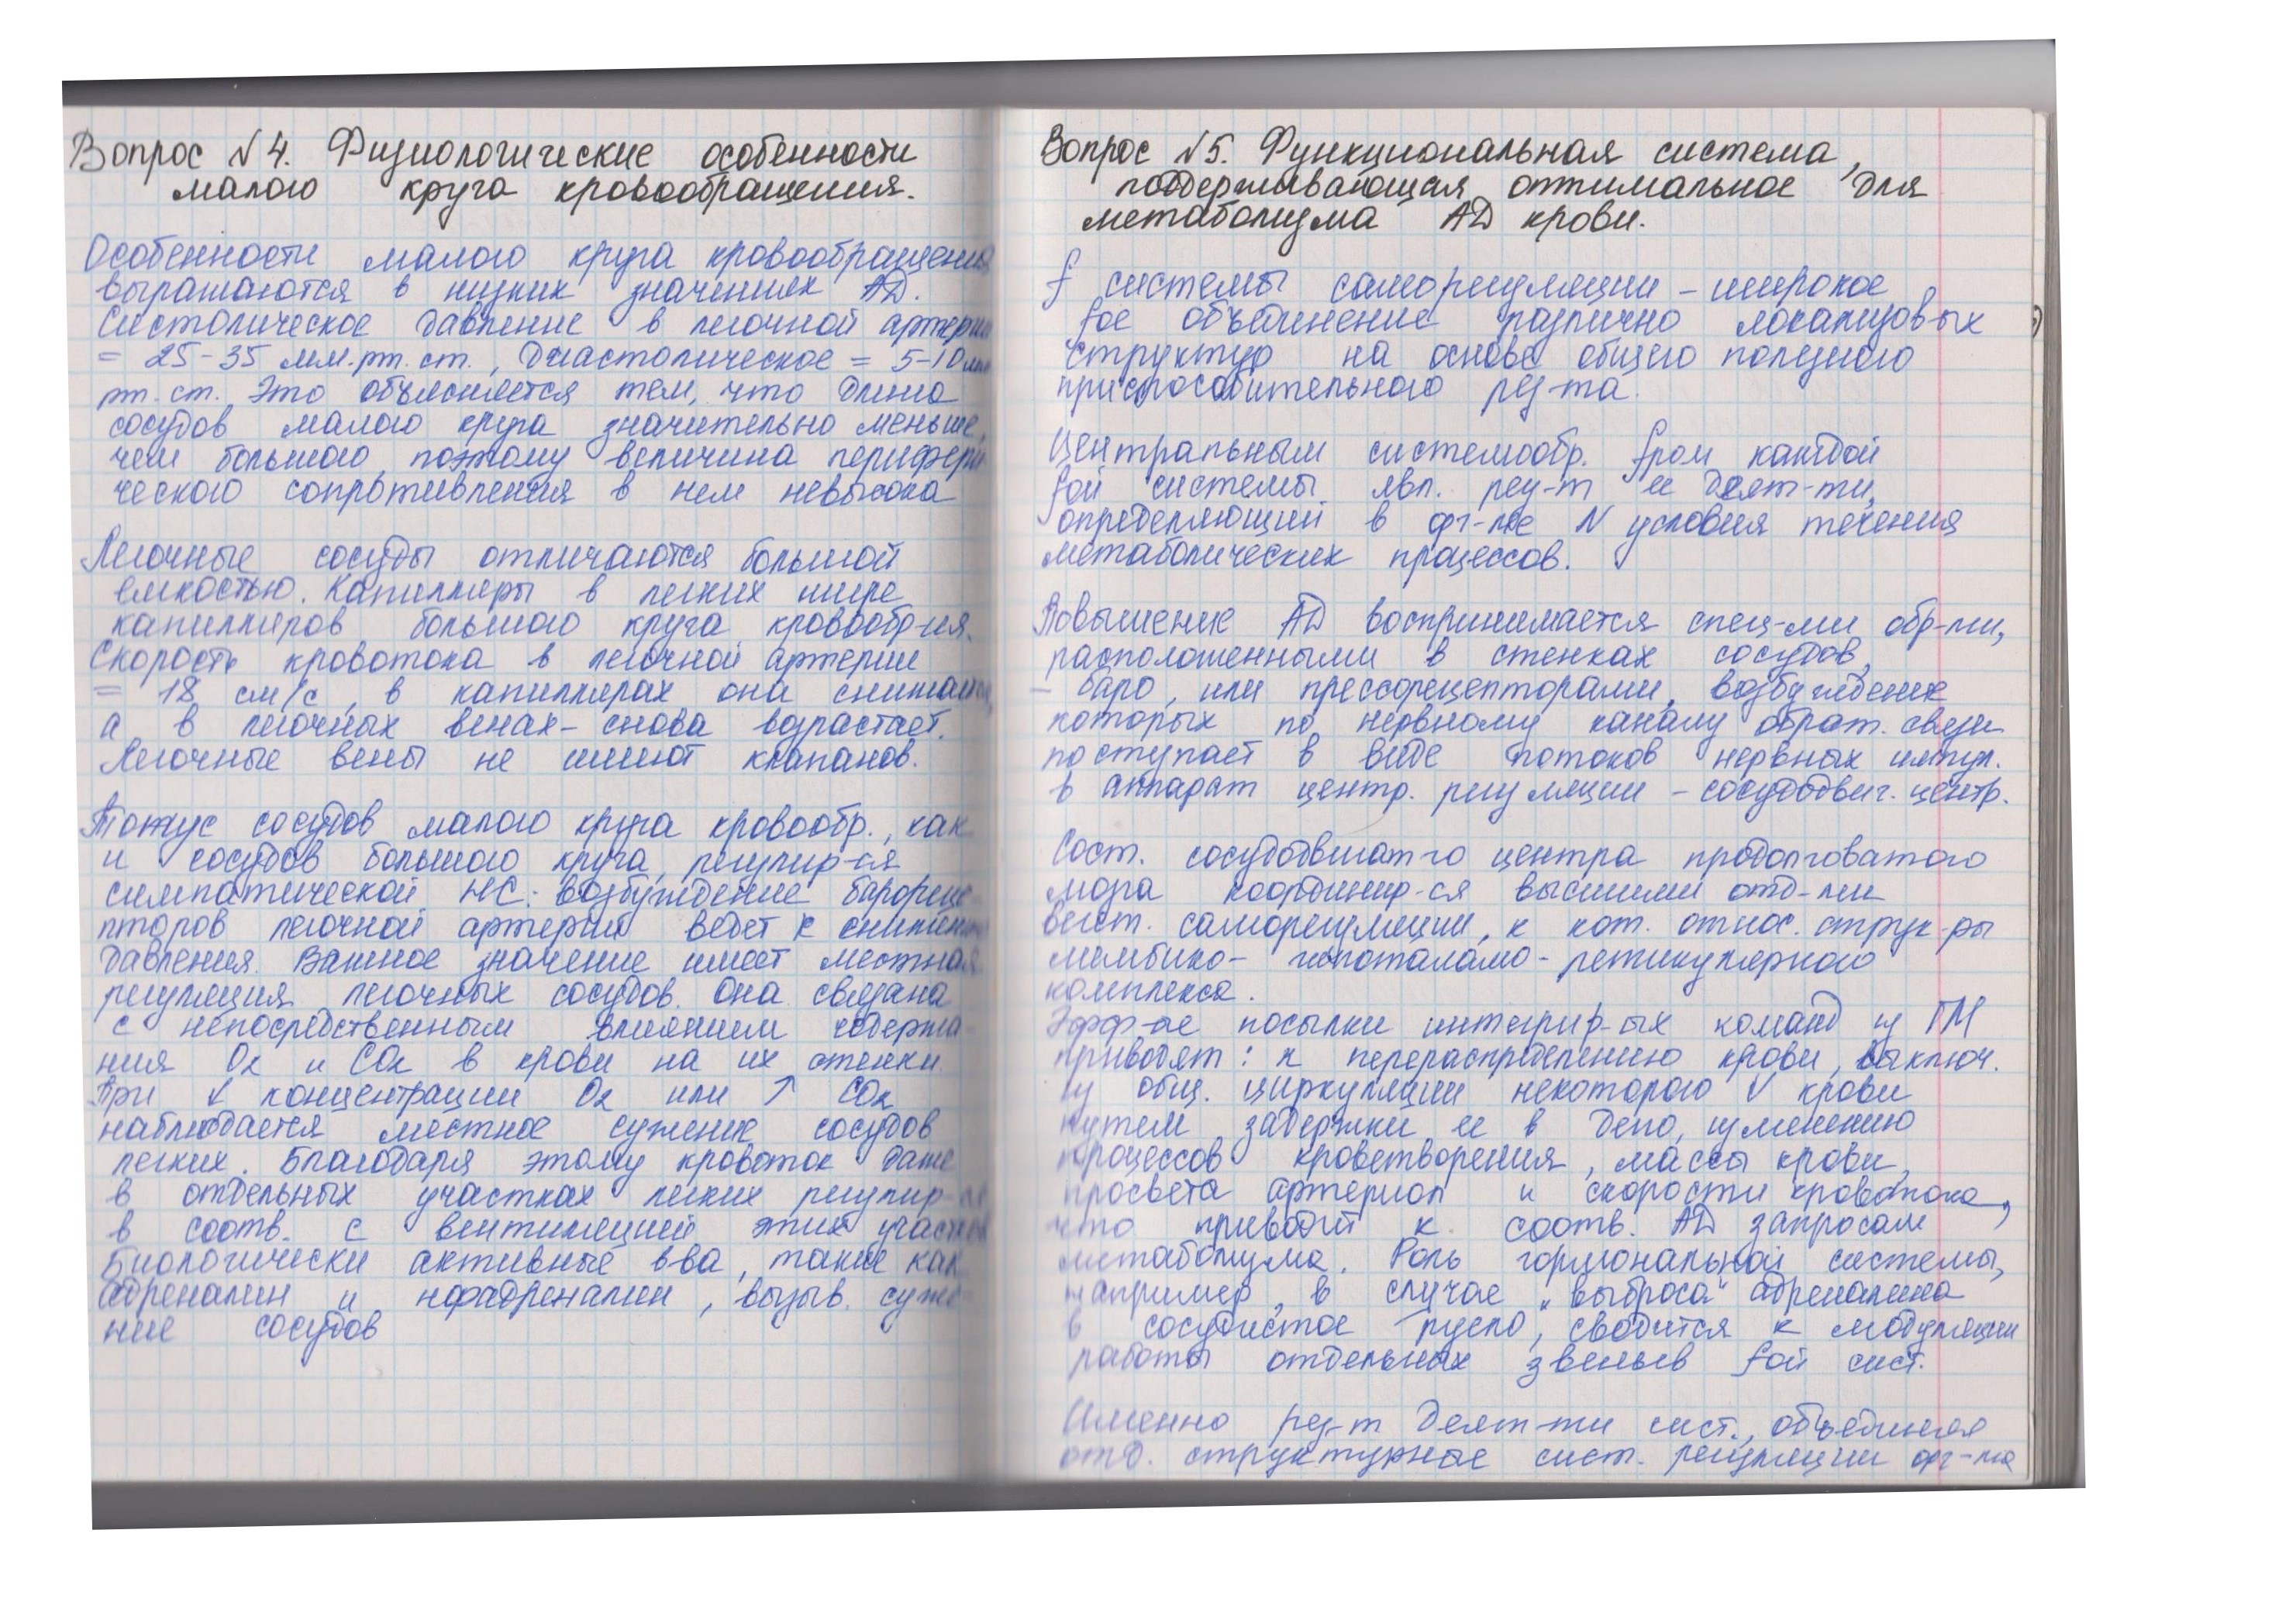 Вопрос №4. Физиологические особенности
малого круга кровообращения.
Особенности малого круга кровообращения
выражаются в низких значениях АД.
Систолическое давление в легочной артерии
= 25-35 мм.рт.ст., Диастолическое = 5-10 мм
рт.ст. Это объясняется тем, что длина
сосудов малого круга значительно меньше,
чем большого, поэтому величина перифери
ческого сопротивления в нем невысока
Легочные сосуды отличаются большой
емкостью. Капилляры в легких шире
капилляров большого круга кровообр-ия.
Скорость кровотока в легочной артерии
= 18 см/с, в капиллярах она снижается,
а в легочных венах - снова возрастает.
Легочные вены не имеют клапанов.
Тонус сосудов малого круга кровообр., как
и сосудов большого круга, регулир-ся
симпатической НС: возбуждение бароре
пторов легочной артерии ведет к снижен
давления. Важное значение имеет местная
регуляция легочных сосудов. Она связана
с непосредственным влиянием содержа-
ния O2 и CO2 в крови на их стенки.
При ↓ концентрации O2 или ↑ CO2
наблюдается местное сужение сосудов
легких. Благодаря этому кровоток даже
в отдельных участках легких регулир-ся
в соотв. с вентиляцией этих участков
Биологически активные в-ва, такие как
адреналин и норадреналин, вызыв. суже-
ние сосудов
Вопрос №5. Функциональная система,
поддерживающая оптимальное для
метаболизма АД крови.
f системы саморегуляции - широкое
fое объединение различно локализовых
структур на основе общего полезного
приспособительного рез-та.
Центральным системообр. fром каждой
fой системы явл. рез-т ее деят-ти,
определяющий в орг-ме N условия течения
метаболических процессов.
Повышение АД воспринимается спец-ми обр-ми,
расположенными в стенках сосудов,
- баро, или прессорецепторами, возбуждение
которых по нервному каналу обрат. связи
поступает в виде потоков нервных импул.
в аппарат центр. регуляции - сосудодвиг. центр.
Сост. сосудодвигат-го центра продолговатого
мозга координир-ся высшими отд-ми
вегет. саморегуляции, к кот. относ. струк-ры
лимбико- гипоталамо- ретикулярного
комплекса.
Эфф-ые посылки интегрир-ых команд из ГМ
приводят: к перераспределению крови, выключ.
из общ. циркуляции некоторого V крови
путем задержки ее в депо, изменению
процессов кроветворения, массы крови,
просвета артериол и скорости кровотока,
что приводит к соотв. АД запросам
метаболизма. Роль гормональной системы,
например, в случае „выброса" адреналина
в сосудистое русло, сводится к модуляции
работы отдельных звеньев fой сист.
Именно рез-т деят-ти сист., объединяя
отд. структурные сист. регуляции орг-ма